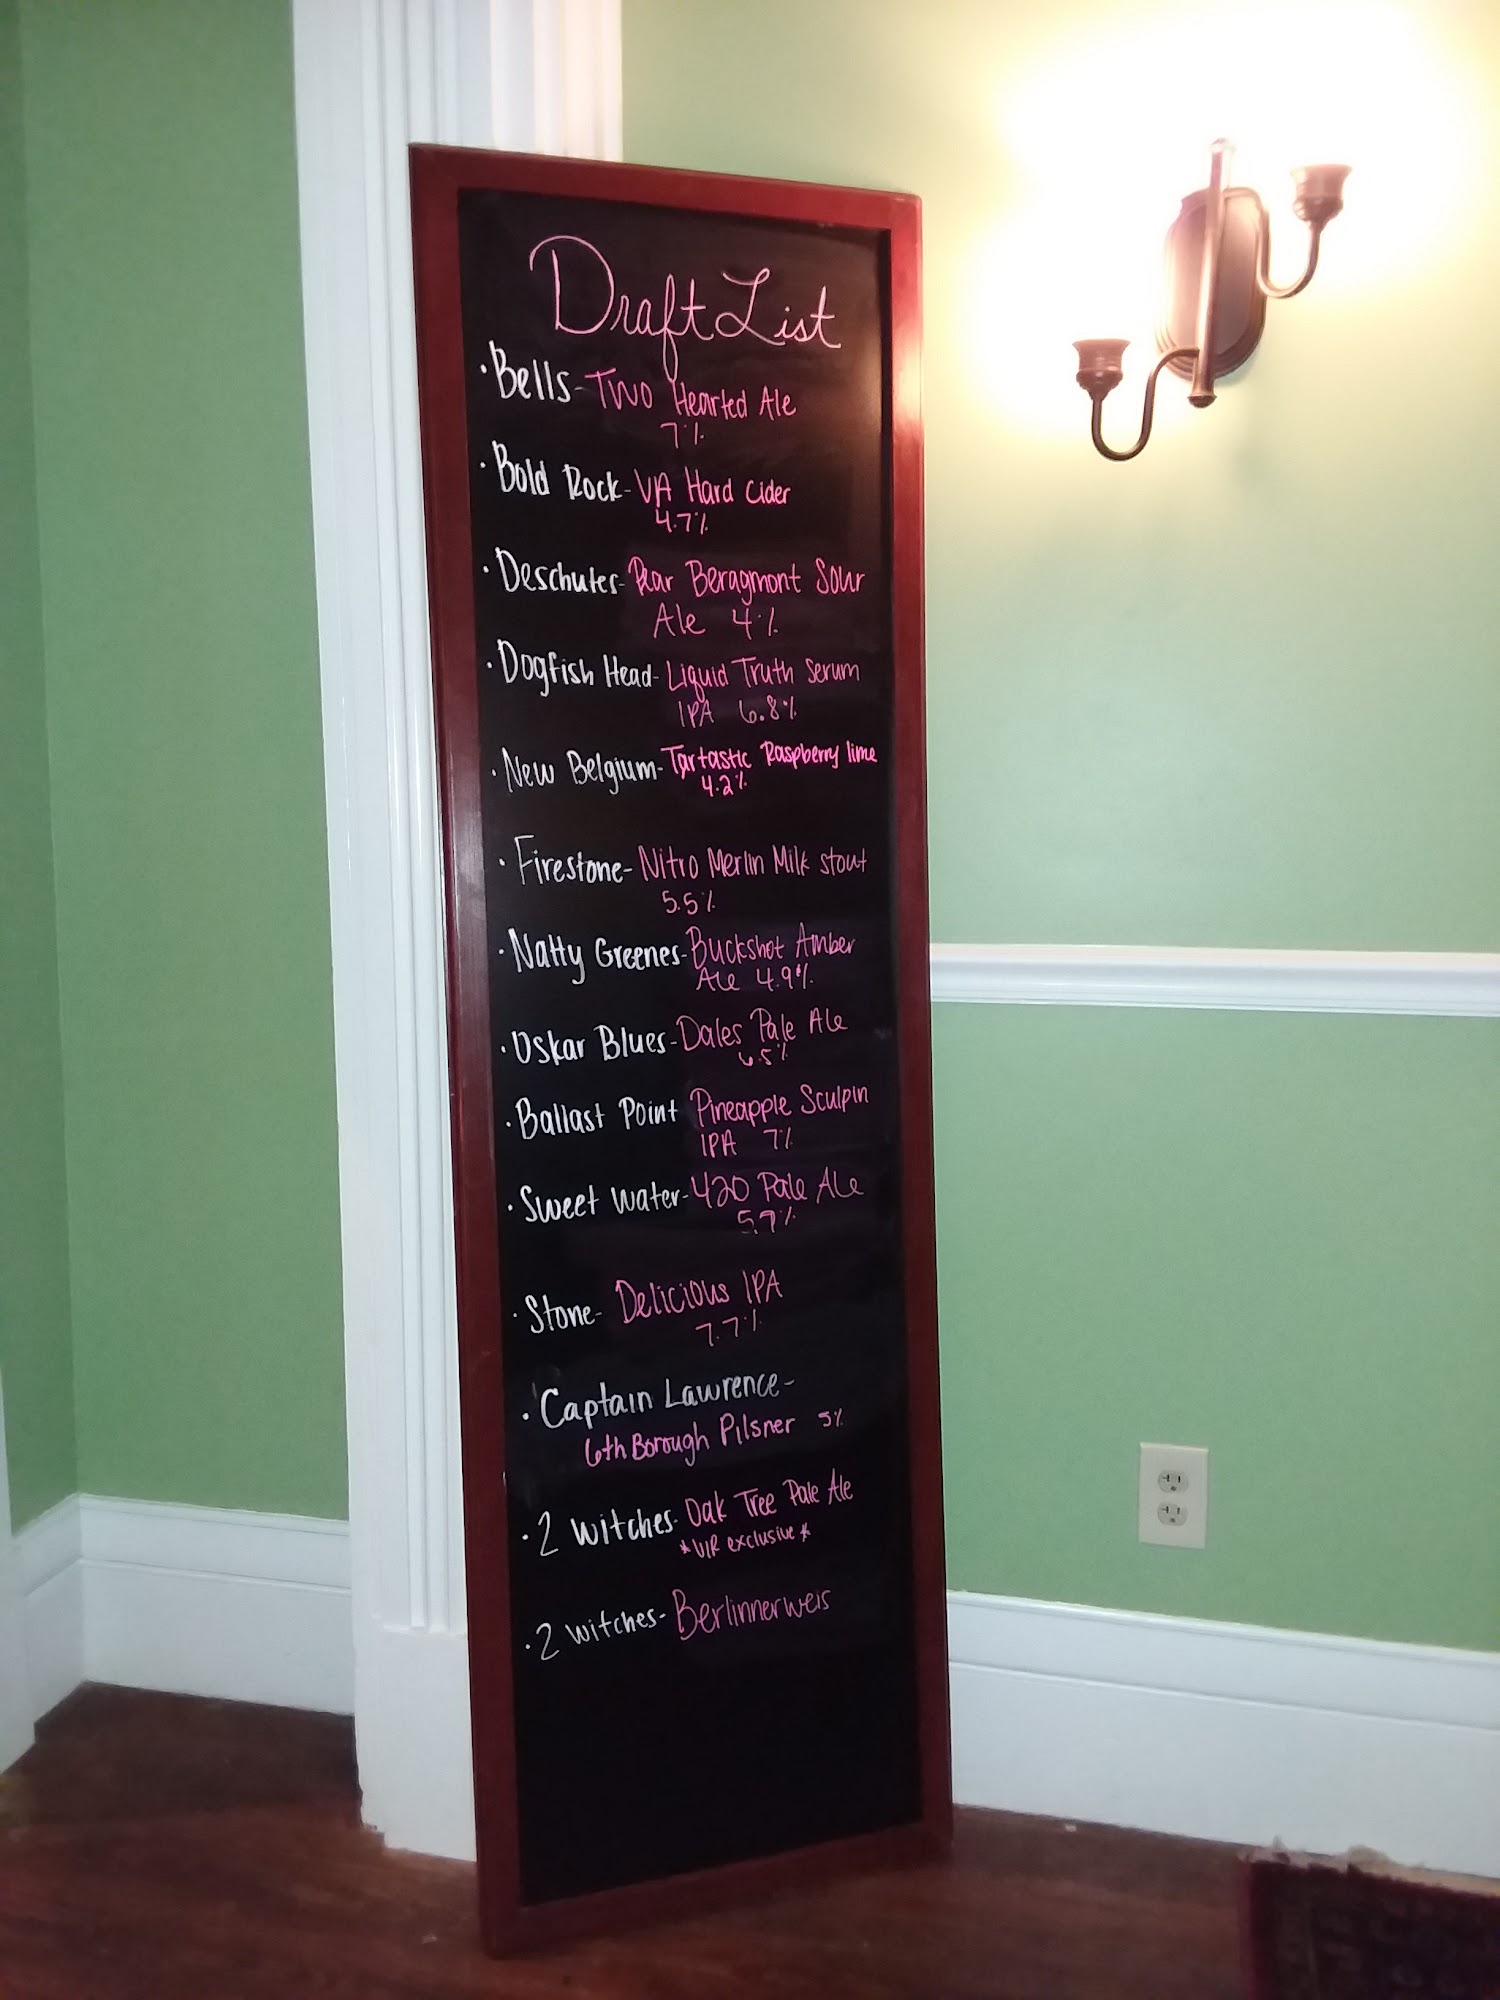 Draft List
· Bells - Two Hearted Ale
7%
· Bold Rock - VA Hard Cider
4.7%
· Deschutes - Pear Beragmont Sour
Ale 4%
· Dogfish Head - Liquid Truth Serum
IPA 6.8%
· New Belgium - Tartastic Raspberry lime
4.2%
· Firestone - Nitro Merlin Milk stout
5.5%
· Natty Greenes - Buckshot Amber
Ale 4.9%
· Oskar Blues - Dales Pale Ale
6.5%
· Ballast Point Pineapple Sculpin
IPA 7%
· Sweet Water - 420 Pale Ale
5.7%
· Stone - Delicious IPA
7.7%
· Captain Lawrence -
6th Borough Pilsner 5%
· 2 Witches - Oak Tree Pale Ale
* VIR exclusive *
· 2 Witches - Berlinnerweis